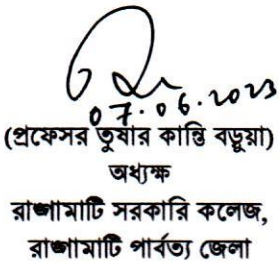 07.06.2023
(প্রফেসর তুষার কান্তি বড়ুয়া)
অধ্যক্ষ
রাঙ্গামাটি সরকারি কলেজ,
রাঙ্গামাটি পার্বত্য জেলা